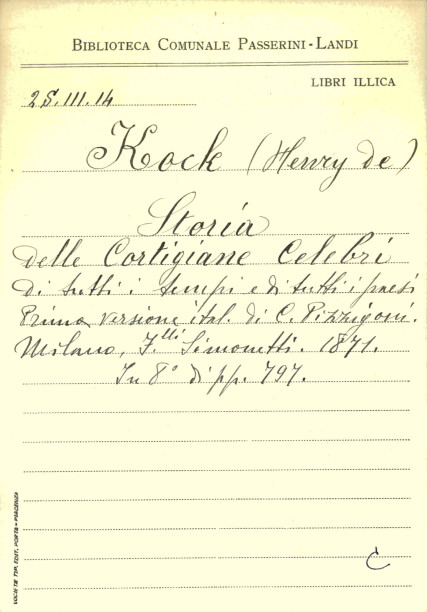 BIBLIOTECA COMUNALE PASSERINI-LANDI
LIBRI ILLICA
25.III.14
Kock (Henry de)
Storia
delle Cortigiane Celebri
di tutti i tempi e di tutti i paesi
Prima versione ital. di C. Pizzigoni.
Milano, F.lli Simonetti. 1871.
In 8° di pp. 797.
C